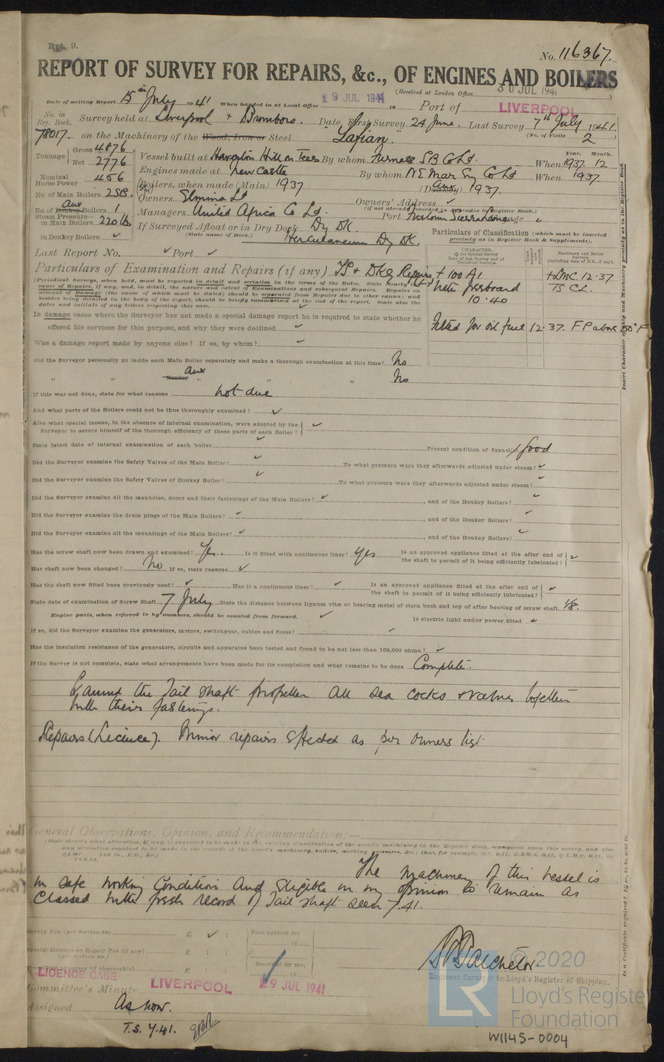 Rpt. 9.
No. 116367.
REPORT OF SURVEY FOR REPAIRS, &c., OF ENGINES AND BOILERS
(Received at London Office 30 JUL 1941)
Date of writing Report 15th July 1941 When handed in at Local Office 19 JUL 1941 19 Port of LIVERPOOL
No. in Reg. Book. Survey held at Liverpool & Bromboro. Date, First Survey 24 June. Last Survey 7th July 1941
78017. on the Machinery of the Wood, Iron or Steel "Lafian." (No. of Visits 2)
Tonnage Gross 4876
Net 2776
Vessel built at Haverton Hill on Tees By whom Furness SB Co Ld. When 1937 12
Year. Month.
Nominal Horse Power 456
Engines made at Newcastle By whom NE Mar Eng Co Ld When 1937.
No. of Main Boilers 2SB.
Boilers, when made (Main) 1937 (Donkey) Aux 1937.
No. of Donkey Boilers Aux 1
Owners Ld Owners' Address
Steam Pressure in Main Boilers 220 lb
Managers United Africa Co Ld. Port
in Donkey Boilers
If Surveyed Afloat or in Dry Dock Dry Dk.
(State name of Dock.) Herculaneum Dry Dk.
Particulars of Classification (which must be inserted precisely as in Register Book & Supplements).
Last Report No. Port
Particulars of Examination and Repairs (if any) TS & Dkg Repairs
+ 100 A1
with freeboard
10.40
+LMC 12.37
TS CL
fitted for oil fuel 12.37. F P above 150° F
In damage cases where the Surveyor has not made a special damage report he is required to state whether he
offered his services for this purpose, and why they were declined
Was a damage report made by anyone else? If so, by whom?
Did the Surveyor personally go inside each Main Boiler separately and make a thorough examination at this time? No
" " Donkey Aux " " " No
If this was not done, state for what reasons not due
And what parts of the Boilers could not be thus thoroughly examined?
Also what special means, in the absence of internal examination, were adopted by the Surveyor to assure himself of the thorough efficiency of those parts of each Boiler?
State latest date of internal examination of each boiler Present condition of funnel(s) Good
Did the Surveyor examine the Safety Valves of the Main Boiler? To what pressure were they afterwards adjusted under steam?
Did the Surveyor examine the Safety Valves of Donkey Boiler? To what pressure were they afterwards adjusted under steam?
Did the Surveyor examine all the manholes, doors and their fastenings of the Main Boilers? , and of the Donkey Boilers?
Did the Surveyor examine the drain plugs of the Main Boilers? , and of the Donkey Boilers?
Did the Surveyor examine all the mountings of the Main Boilers? , and of the Donkey Boilers?
Has the screw shaft now been drawn and examined? Yes. Is it fitted with continuous liner? Yes Is an approved appliance fitted at the after end of the shaft to permit of it being efficiently lubricated?
Has shaft now been changed? No If so, state reasons
Has the shaft now fitted been previously used? Has it a continuous liner? Is an approved appliance fitted at the after end of the shaft to permit of it being efficiently lubricated?
State date of examination of Screw Shaft 7 July State the distance between lignum vitæ or bearing metal of stern bush and top of after bearing of screw shaft 1/8.
Engine parts, when referred to by numbers, should be counted from forward. Is electric light and/or power fitted
If so, did the Surveyor examine the generators, motors, switchgear, cables and fuses?
Has the insulation resistance of the generators, circuits and apparatus been tested and found to be not less than 100,000 ohms?
If the Survey is not complete, state what arrangements have been made for its completion and what remains to be done Complete.
Examined the Tail Shaft propeller all sea cocks & valves together
with their fastenings.
Repairs (Licence). Minor repairs effected as per owners list
General Observations, Opinion, and Recommendation:—
The Machinery of this vessel is
in safe working Condition and Eligible in my opinion to remain as
Classed with fresh record of Tail Shaft seen 7.41.
Survey Fee (per Section) £
Special Damage or Repair Fee (if any)
Fees applied for
LICENCE CASE
Engineer Surveyor to Lloyd's Register of Shipping.
Committee's Minute LIVERPOOL 29 JUL 1941
Assigned As now.
T.S. 7.41.
© 2020
LR Lloyd's Register Foundation
W1145-0004